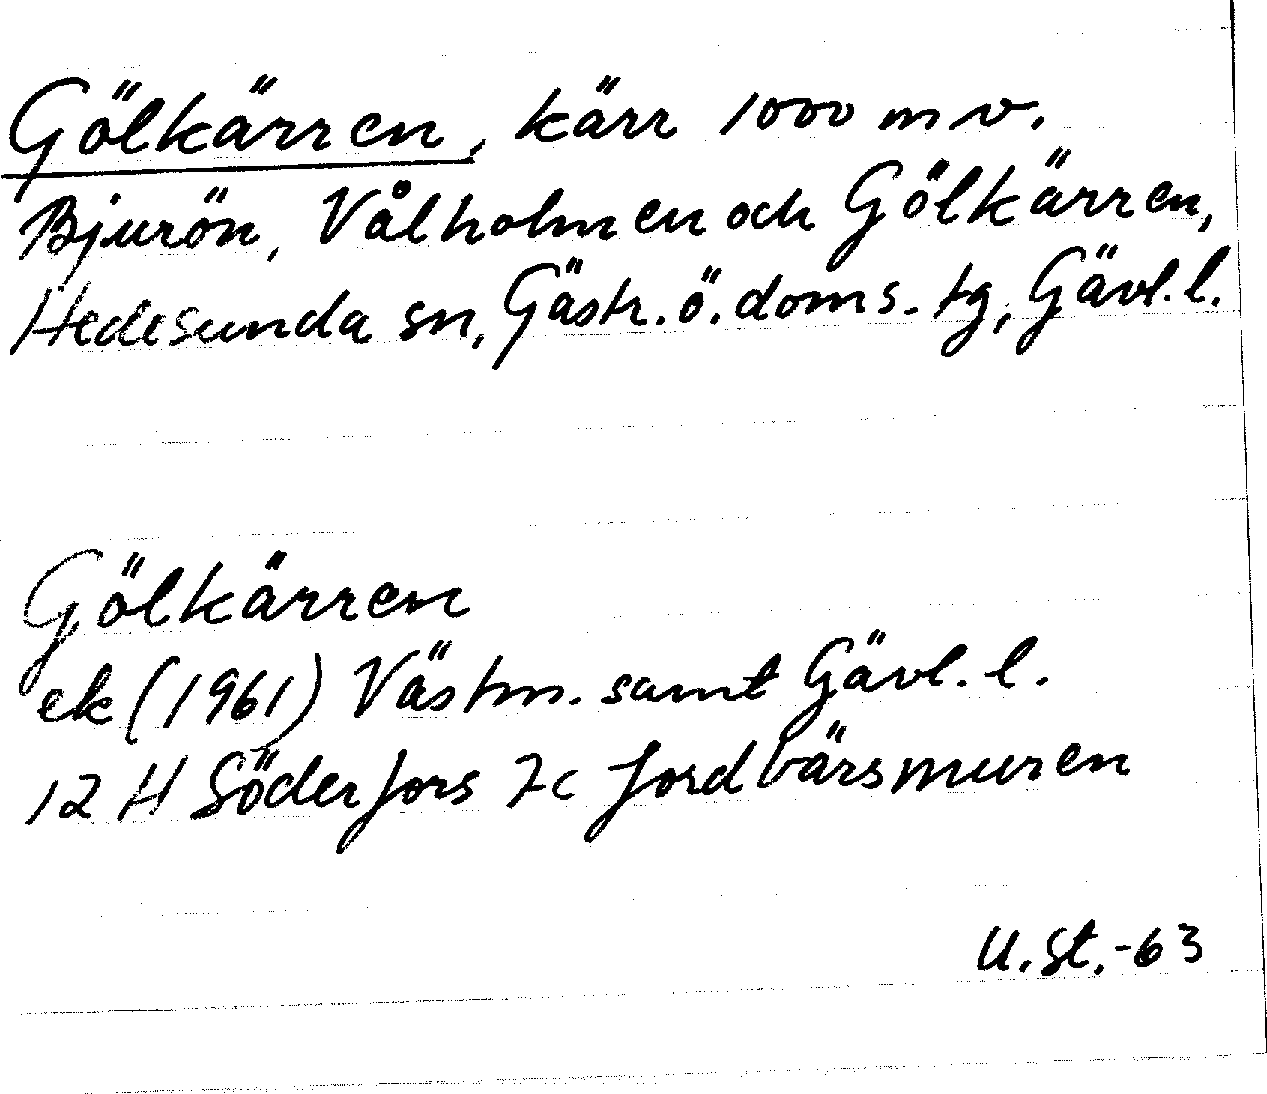 Gölkärren, kärr 1000 m v.
Bjurön, Vålholmen och Gölkärren,
Hedesunda sn, Gästr. ö. doms. tg, Gävl. l.
Gölkärren
ek (1961) Västm. samt Gävl. l.
12 H Söderfors 7c Jordbärsmuren
U. St. -63